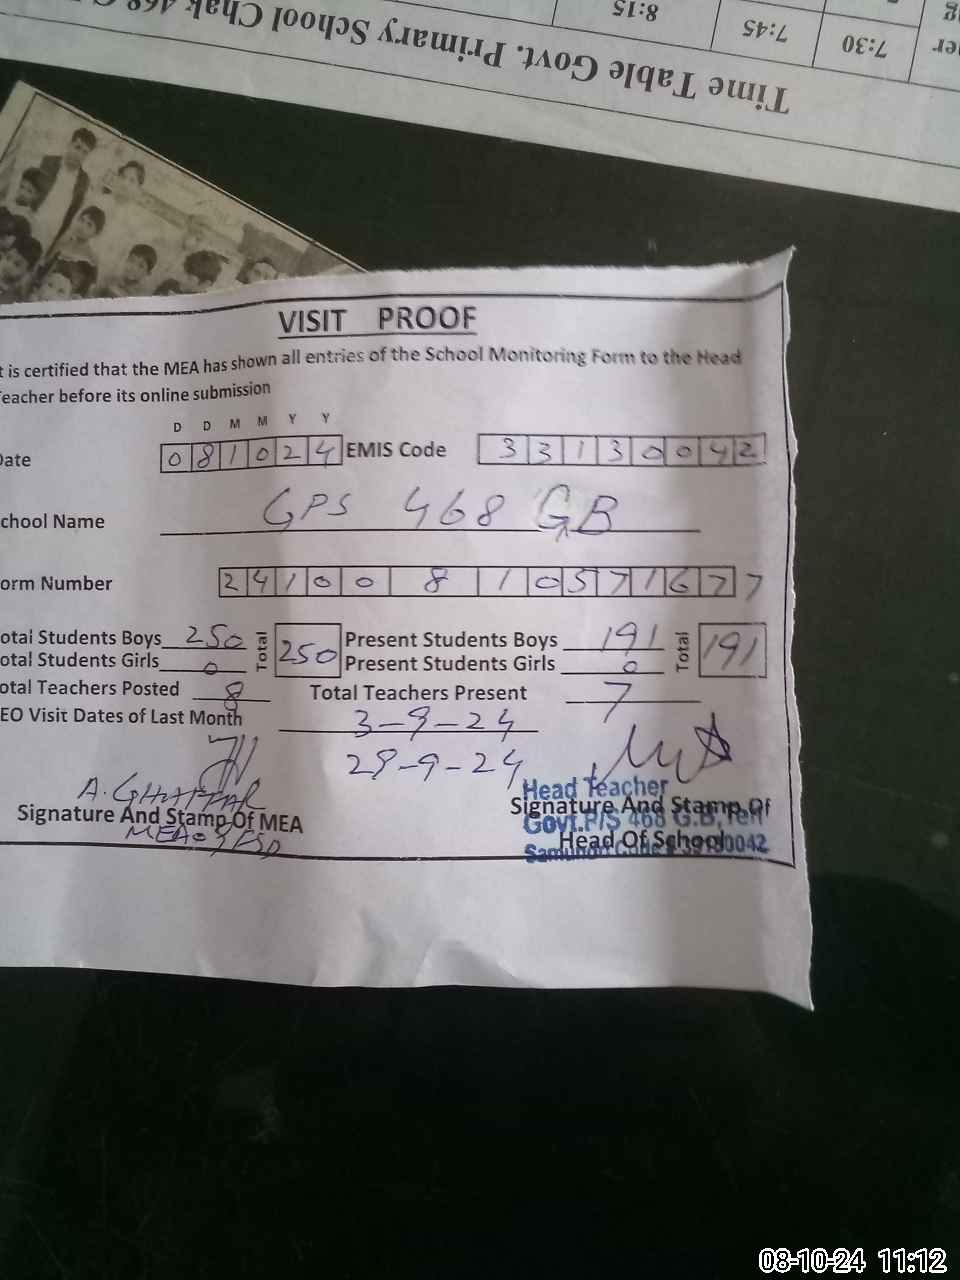 8:15
7:45
7:30
Time Table Govt. Primary School Chak 468 G
VISIT PROOF
t is certified that the MEA has shown all entries of the School Monitoring Form to the Head
eacher before its online submission
D D M M Y Y
ate 0 8 1 0 2 4 EMIS Code 3 3 1 3 0 0 4 2
chool Name GPS 468 GB
orm Number 2 4 1 0 0 8 1 0 5 7 1 6 7 7
otal Students Boys 250 Total 250 Present Students Boys 191 Total 191
otal Students Girls 0 Present Students Girls 0
otal Teachers Posted 8 Total Teachers Present 7
EO Visit Dates of Last Month 3-9-24
29-9-24
A. GHAFFAR
Head Teacher
Signature And Stamp Of MEA Signature And Stamp Of
Govt.P/S 468 G.B,Teh
Head Of School
08-10-24 11:12